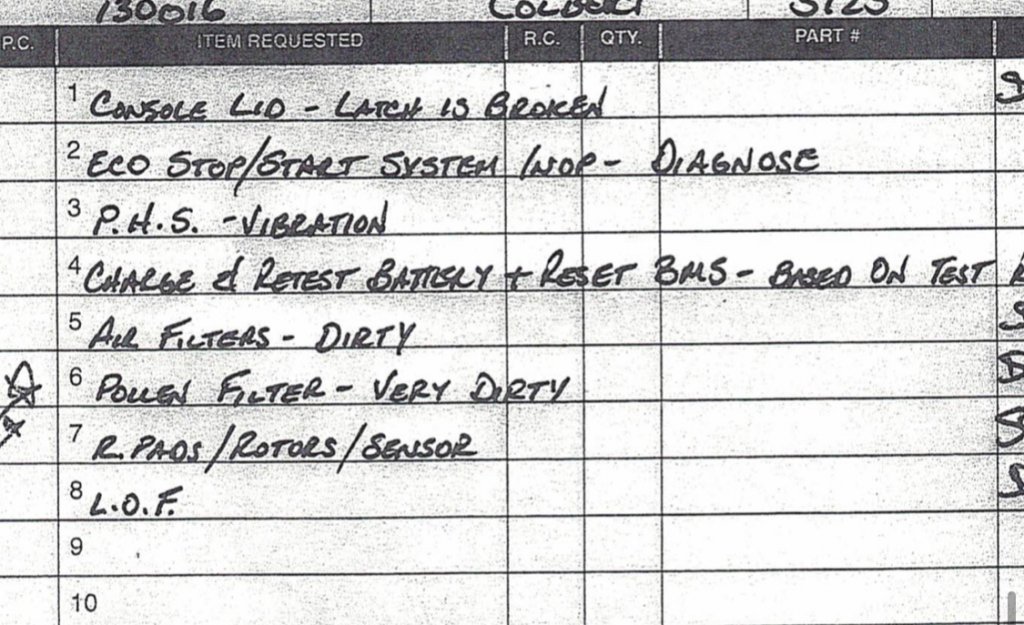 130016 COLBERT 3125
P.C. ITEM REQUESTED R.C. QTY. PART #
1 CONSOLE LID - LATCH IS BROKEN
2 ECO STOP/START SYSTEM INOP - DIAGNOSE
3 P.H.S. - VIBRATION
4 CHARGE & RETEST BATTERY + RESET BMS - BASED ON TEST
5 AIR FILTERS - DIRTY
6 POLLEN FILTER - VERY DIRTY
7 R. PADS/ROTORS/SENSOR
8 L.O.F.
9
10